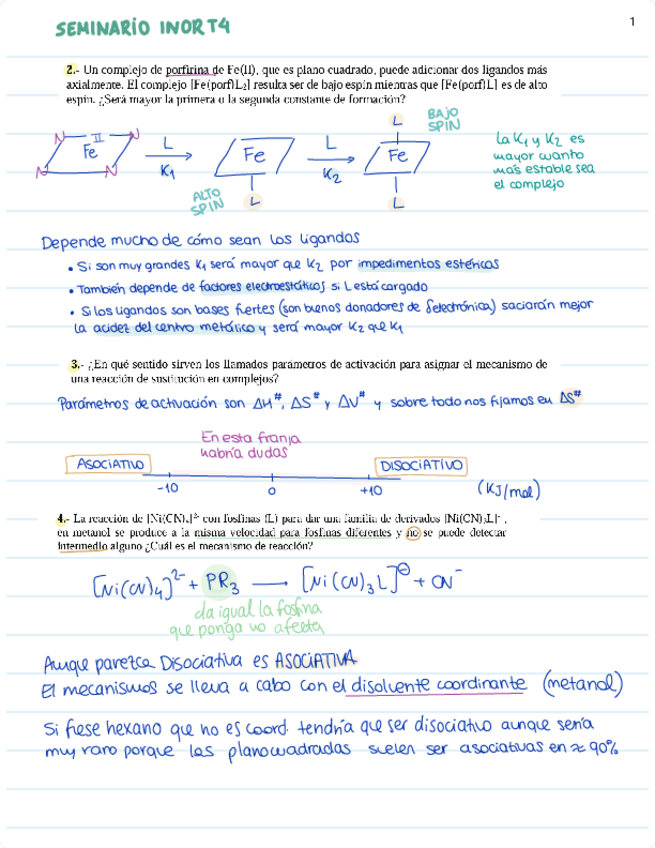 SEMINARIO INORT4
1
2.- Un complejo de porfirina de Fe(II), que es plano cuadrado, puede adicionar dos ligandos más
axialmente. El complejo [Fe(porf)L2] resulta ser de bajo espín mientras que [Fe(porf)L] es de alto
espín. ¿Será mayor la primera o la segunda constante de formación?
N N II Fe N N
L K1
Fe L
ALTO SPIN
L K2
L Fe L
BAJO SPIN
la K1 y K2 es
mayor cuanto
más estable sea
el complejo
Depende mucho de cómo sean los ligandos
• Si son muy grandes K1 será mayor que K2 por impedimentos estéricos
• También depende de factores electroestáticos si L está cargado
• Si los ligandos son bases fuertes (son buenos donadores de δelectrónica) saciarán mejor
la acidez del centro metálico y será mayor K2 que K1
3.- ¿En qué sentido sirven los llamados parámetros de activación para asignar el mecanismo de
una reacción de sustitución en complejos?
Parámetros de activación son ΔH#, ΔS# y ΔV# y sobre todo nos fijamos en ΔS#
En esta franja
habría dudas
ASOCIATIVO DISOCIATIVO
-10 0 +10 (KJ/mol)
4.- La reacción de [Ni(CN)4]2- con fosfinas (L) para dar una familia de derivados [Ni(CN)3L]- ,
en metanol se produce a la misma velocidad para fosfinas diferentes y no se puede detectar
intermedio alguno ¿Cuál es el mecanismo de reacción?
[Ni(CN)4]2- + PR3 → [Ni(CN)3L]⊖ + CN-
da igual la fosfina
que ponga no afecta
Aunque parezca Disociativa es ASOCIATIVA
El mecanismos se lleva a cabo con el disolvente coordinante (metanol)
Si fuese hexano que no es coord. tendría que ser disociativo aunque sería
muy raro porque las planocuadradas suelen ser asociativas en ≈ 90%